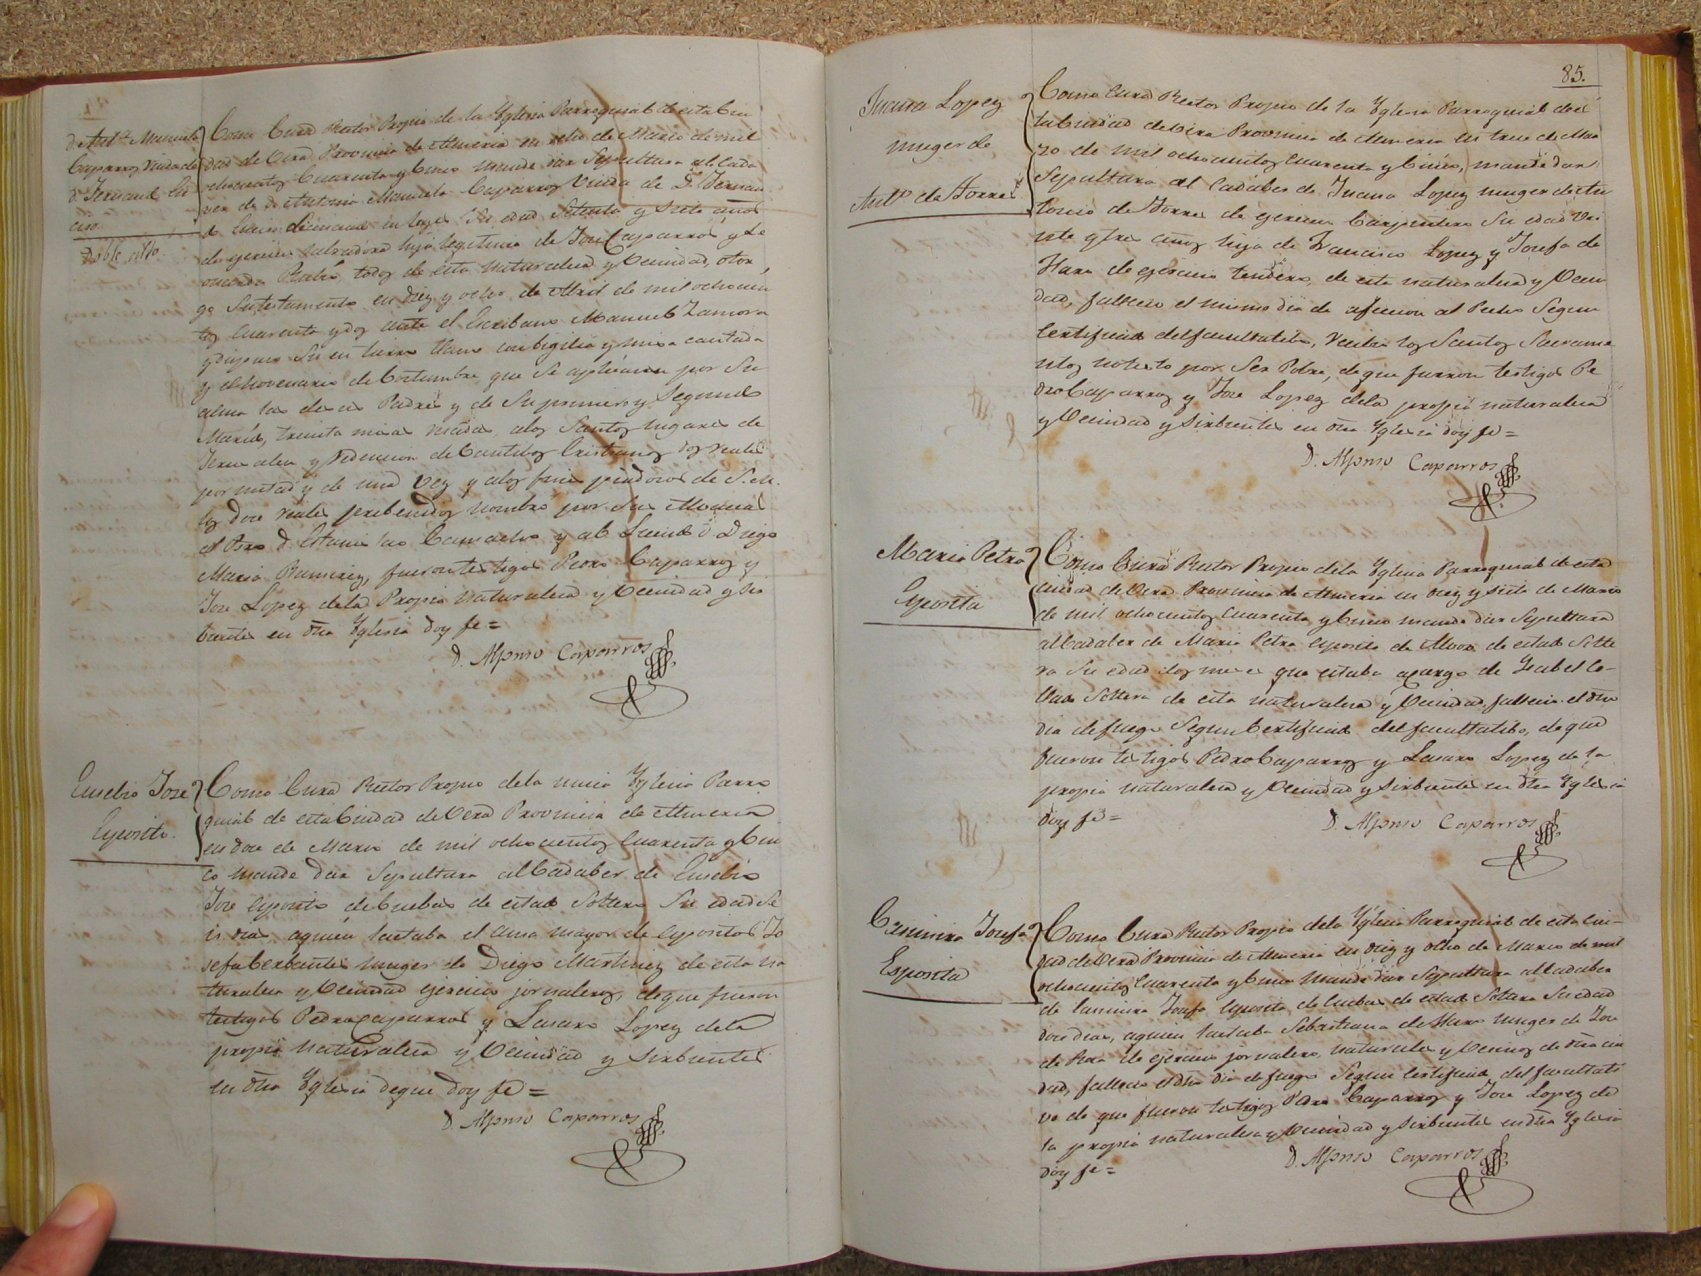 Dª Antª Manuela
Caparros Viuda de
Dⁿ Fernando
Como Cura Rector Propio de la Yglesia Parroquial de esta Ciu
dad de Vera Provincia de Almeria en ocho de Marzo de mil
ochocientos Cuarenta y Cinco mande dar Sepultura al Cada
ver de Dª Antonia Manuela Caparros Viuda de Dⁿ Fernan
do Su edad Setenta y Siete años
de ejercicio labradora hija legitima de Jose Caparros y Le
onarda todos de esta naturaleza y Vecindad, otor
go Su testamento en diez y ocho de Abril de mil ochocien
tos Cuarenta y dos ante el Escribano Manuel Zamora
y dispuso Su entierro llano con bigilia y misa cantada
y el Novenario de Costumbre que Se aplicaran por Su
alma las de sus Padres y de Su primero y Segundo
Marido, treinta misas rezadas, a los Santos lugares de
Jerusalen y redencion de Cautibos Cristianos dos reales
por mitad y de una vez y a los fines piadosos de S. M.
los doce reales prebenidos nombro por Sus Albaceas
al Pbro D. Estanislao Camacho y al D. Diego
Maria Ramirez, fueron testigos Pedro Caparros y
Jose Lopez de la Propia Naturaleza y Vecindad y Sir
bientes en dha Yglesia doy fe =
D. Alfonso Caparros
Eusebio Jose
Esposito.
Como Cura Rector Propio de la unica Yglesia Parro
quial de esta Ciudad de Vera Provincia de Almeria
en doce de Marzo de mil ochocientos Cuarenta y Cin
co mande dar Sepultura al Cadaber de Eusebio
Jose Esposito de Cuebas de estado Soltero Su edad Se
is dias aquien lactaba el ama mayor de Espositos Jo
sefa Cerbantes muger de Diego Martinez de esta na
turaleza y Vecindad ejercicio jornaleros, de que fueron
testigos Pedro Caparros y Lasaro Lopez de la
propia Naturaleza y Vecindad y Sirbientes
en dha Yglesia de que doy fe =
D. Alfonso Caparros
85.
Juana Lopez
muger de
Antº de Torres
Como Cura Rector Propio de la Yglesia Parroquial de es
ta Ciudad de Vera Provincia de Almeria en trece de Mar
zo de mil ochocientos Cuarenta y Cinco, mande dar
Sepultura al Cadaber de Juana Lopez muger de An
tonio de Torres de ejercicio Carpintero Su edad Ve
inte y tres años hija de Francisco Lopez y Josefa de
Haro de ejercicio tendero, de esta naturaleza y Vecin
dad, fallecio el mismo dia de afeccion al Pecho Segun
Certificado del facultatibo, recibio los Santos Sacrame
ntos no testo por Ser Pobre, de que fueron testigos Pe
dro Caparros y Jose Lopez de la propia naturaleza
y Vecindad y Sirbientes en dha Yglesia doy fe =
D. Alfonso Caparros
Maria Petra
Esposita
Como Cura Rector Propio de la Yglesia Parroquial de esta
Ciudad de Vera Provincia de Almeria en diez y siete de Marzo
de mil ochocientos Cuarenta y Cinco mande dar Sepultura
al Cadaber de Maria Petra Esposita de de estado Solte
ra Su edad dos meses que estaba a cargo de Ysabel Co
llado Soltera de esta naturaleza y Vecindad, fallecio el dho
dia de fuego Segun Certificado del facultatibo, de que
fueron testigos Pedro Caparros y Lasaro Lopez de la
propia naturaleza y Vecindad y Sirbientes en dha Yglesia
doy fe =
D. Alfonso Caparros
Casimira Josefa
Esposita
Como Cura Rector Propio de la Yglesia Parroquial de esta Ciu-
dad de Vera Provincia de Almeria en diez y ocho de Marzo de mil
ochocientos Cuarenta y Cinco mande dar Sepultura al Cadaber
de Casimira Josefa Esposita de Cuebas de estado Soltera Su edad
doce dias, aquien lactaba Sebastiana de Haro muger de Jose
de Rosa de ejercicio jornalero, naturales y Vecinos de dha ciu
dad, fallecio el dho dia de fuego Segun Certificado del facultati
vo de que fueron testigos Pedro Caparros y Jose Lopez de
la propia naturaleza y Vecindad y Sirbientes en dha Yglesia
doy fe =
D. Alfonso Caparros